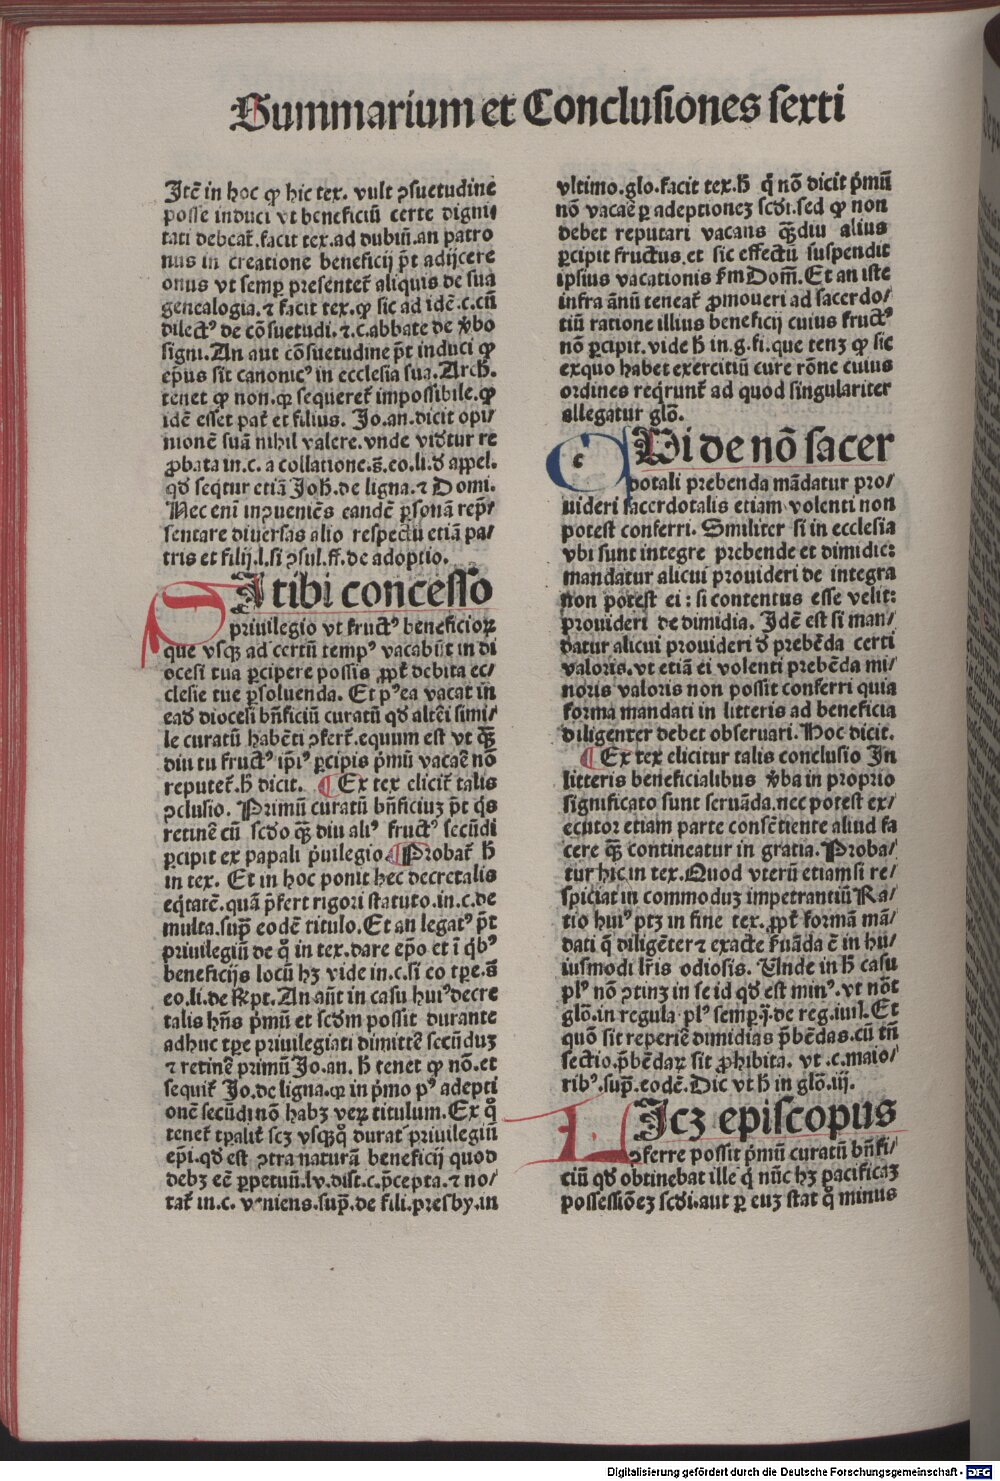 Summarium et Conclusiones sexti
Itē in hoc ꝙ hic tex. vult ꝯsuetudine
posse induci vt beneficiū certe digni
tati debeat̄. facit tex. ad dubiū. an patro
nus in creatione beneficij p̄t adijcere
onus vt semꝑ presentet̄ aliquis de sua
genealogia. ⁊ facit tex. ꝙ sic ad idē. c. cū
dilectꝰ de cōsuetudi. ⁊. c. abbate de v̄bo
signi. An aut cōsuetudine p̄t induci ꝙ
ep̄us sit canonicꝰ in ecclesia sua. Arch.
tenet ꝙ non. ꝙ sequeret̄ impossibile. ꝙ
idē esset pat̄ et filius. Jo. an. dicit opi/
nionē suā nihil valere. vnde vidtur re
ꝓbata in. c. a collatione. s̄. eo. li. ō appel.
qd̄ seqtur etiā Joh. de ligna. ⁊ Domi.
Nec eni inꝯueniēs eandē ꝑsonā rep̄/
sentare diuersas alio respectu etiā pa/
tris et filij. l. si ꝯsul. ff. de adoptio.
SI tibi concesso
priuilegio vt fructꝰ beneficioꝝ
que vsqꝫ ad certū tempꝰ vacabūt in di
ocesi tua ꝑcipere possis ꝓpt̄ debita ec/
clesie tue ꝑsoluenda. Et pꝰea vacat in
ead̄ diocesi bn̄ficiū curatū qd̄ altēi simi/
le curatū habēti ꝯfert̄. equum est vt qꝫ̄
diu tu fructꝰ ip̄iꝰ ꝑcipis p̄mū vacae nō
reputet̄. h̄ dicit. ¶ Ex tex elicit̄ talis
ꝯclusio. Primū curatū bn̄ficiuꝫ p̄t q̇s
retinē cū scd̄o qꝫ̄ diu aliꝰ fructꝰ secūdi
ꝑcipit ex papali p̄uilegio. ¶ Probat̄ h̄
in tex. Et in hoc ponit hec decretalis
eq̇tatē. quā p̄fert rigori statuto. in. c. de
multa. sup̄. eodē titulo. Et an legatꝰ p̄t
priuilegiū de qͦ in tex. dare ep̄o et ī q̇bꝰ
beneficijs locū hꝫ vide in. c. si eo tp̄e. s̄
eo. li. de rescpt. An aūt in casu huiꝰ decre
talis hn̄s p̄mū et scd̄m possit durante
adhuc tp̄e priuilegiati dimittē secūduꝫ
⁊ retinē primū Jo. an. h̄ tenet ꝙ nō. et
sequit̄ Jo. de ligna. ꝙ in p̄mo pꝰ adepti
onē secūdi nō habꝫ veꝝ titulum. Ex qͦ
tenet̄ tp̄alit̄ scꝫ vsqꝫqͦ durat priuilegiū
ep̄i. qd̄ est ꝯtra naturā beneficij quod
debꝫ eē ꝑpetuū. lv. dist. c. p̄cepta. ⁊ no/
tat̄ in. c. veniens. sup̄. de fili. presby. in
vltimo. glo. facit tex. h̄ q̇ nō dicit p̄mū
nō vacaē ꝑ adeptioneꝫ scd̄i. sed ꝙ non
debet reputari vacans qꝫ̄diu alius
ꝑcipit fructus. et sic effectū suspendit
ipsius vacationis fm Dom̄. Et an iste
infra annū teneat̄ ꝓmoueri ad sacerdo/
tiū ratione illius beneficij cuius fructꝰ
nō ꝑcipit. vide h̄ in. g. fi. que tenꝫ ꝙ sic
exquo habet exercitiū cure rōne cuius
ordines req̇runt̄ ad quod singulariter
allegatur glō.
QVi de nō sacer
dotali prebenda mādatur pro/
uideri sacerdotalis etiam volenti non
potest conferri. Similiter si in ecclesia
vbi sunt integre prebende et dimidie:
mandatur alicui prouideri de integra
non potest ei: si contentus esse velit:
prouideri de dimidia. Idē est si man/
datur alicui prouideri ō prebēda certi
valoris. vt etiā ei volenti prebēda mi/
noris valoris non possit conferri quia
forma mandati in litteris ad beneficia
diligenter debet obseruari. Hoc dicit.
¶ Ex tex elicitur talis conclusio In
litteris beneficialibus v̄ba in proprio
significato sunt seruāda. nec potest ex/
ecutor etiam parte consētiente aliud fa
cere qꝫ̄ contineatur in gratia. Proba/
tur hic in tex. Quod vterū etiamsi re/
spiciat in commoduꝫ impetrantiū Ra/
tio huiꝰ ptꝫ in fine tex. ꝓpt̄ formā mā/
dati q̄ diligēter ⁊ exacte ẜuāda ē in hu/
iusmodi lr̄is odiosis. Unde in h̄ casu
plꝰ nō ꝯtinꝫ in se id qd̄ est minꝰ. vt not̄
glō. in regula plꝰ semꝑ. ij. de reg. iur. l. Et
quō sit reperiē dimidias p̄bēdas. cū tn̄
sectio. p̄bēdaꝝ sit ꝓhibita. vt. c. maio/
ribꝰ. sup̄. eodē. Dic vt h̄ in glō. iij.
LIcꝫ episcopus
ꝯferre possit p̄mū curatū bn̄fi/
ciū qd̄ obtinebat ille q̇ nūc hꝫ pacificaꝫ
possessiōeꝫ scd̄i. aut ꝑ euꝫ stat qͦ minus
Digitalisierung gefördert durch die Deutsche Forschungsgemeinschaft - DFG